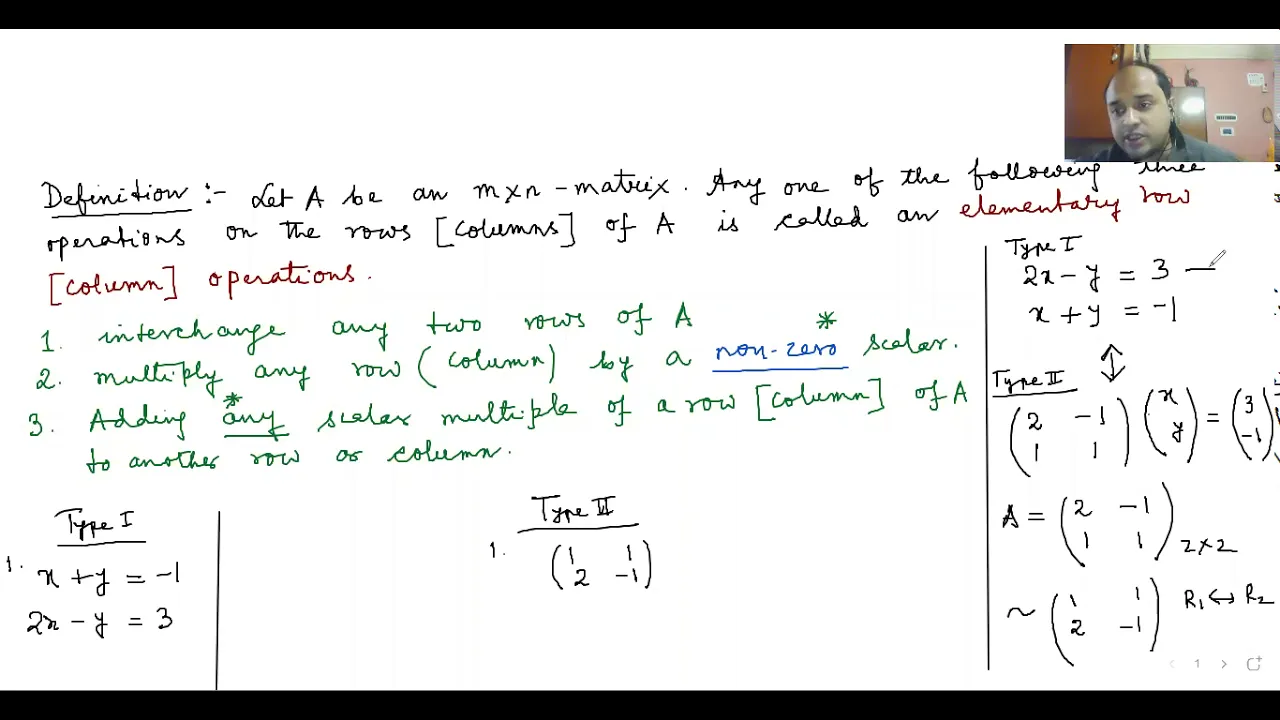 Definition :- Let A be an m×n-matrix. Any one of the following three
operations on the rows [columns] of A is called an elementary row
[column] operations.
1. interchange any two rows of A
2. multiply any row (column) by a non-zero* scalar.
3. Adding any* scalar multiple of a row [column] of A
to another row or column.
Type I
1. x + y = -1
2x - y = 3
Type II
1. ( 1 1
2 -1 )
Type I
2x - y = 3 —
x + y = -1
↕
Type II
( 2 -1 ) ( x ) = ( 3 )
( 1 1 ) ( y ) ( -1 )
A = ( 2 -1
1 1 ) 2×2
~ ( 1 1
2 -1 ) R1 ↔ R2
1